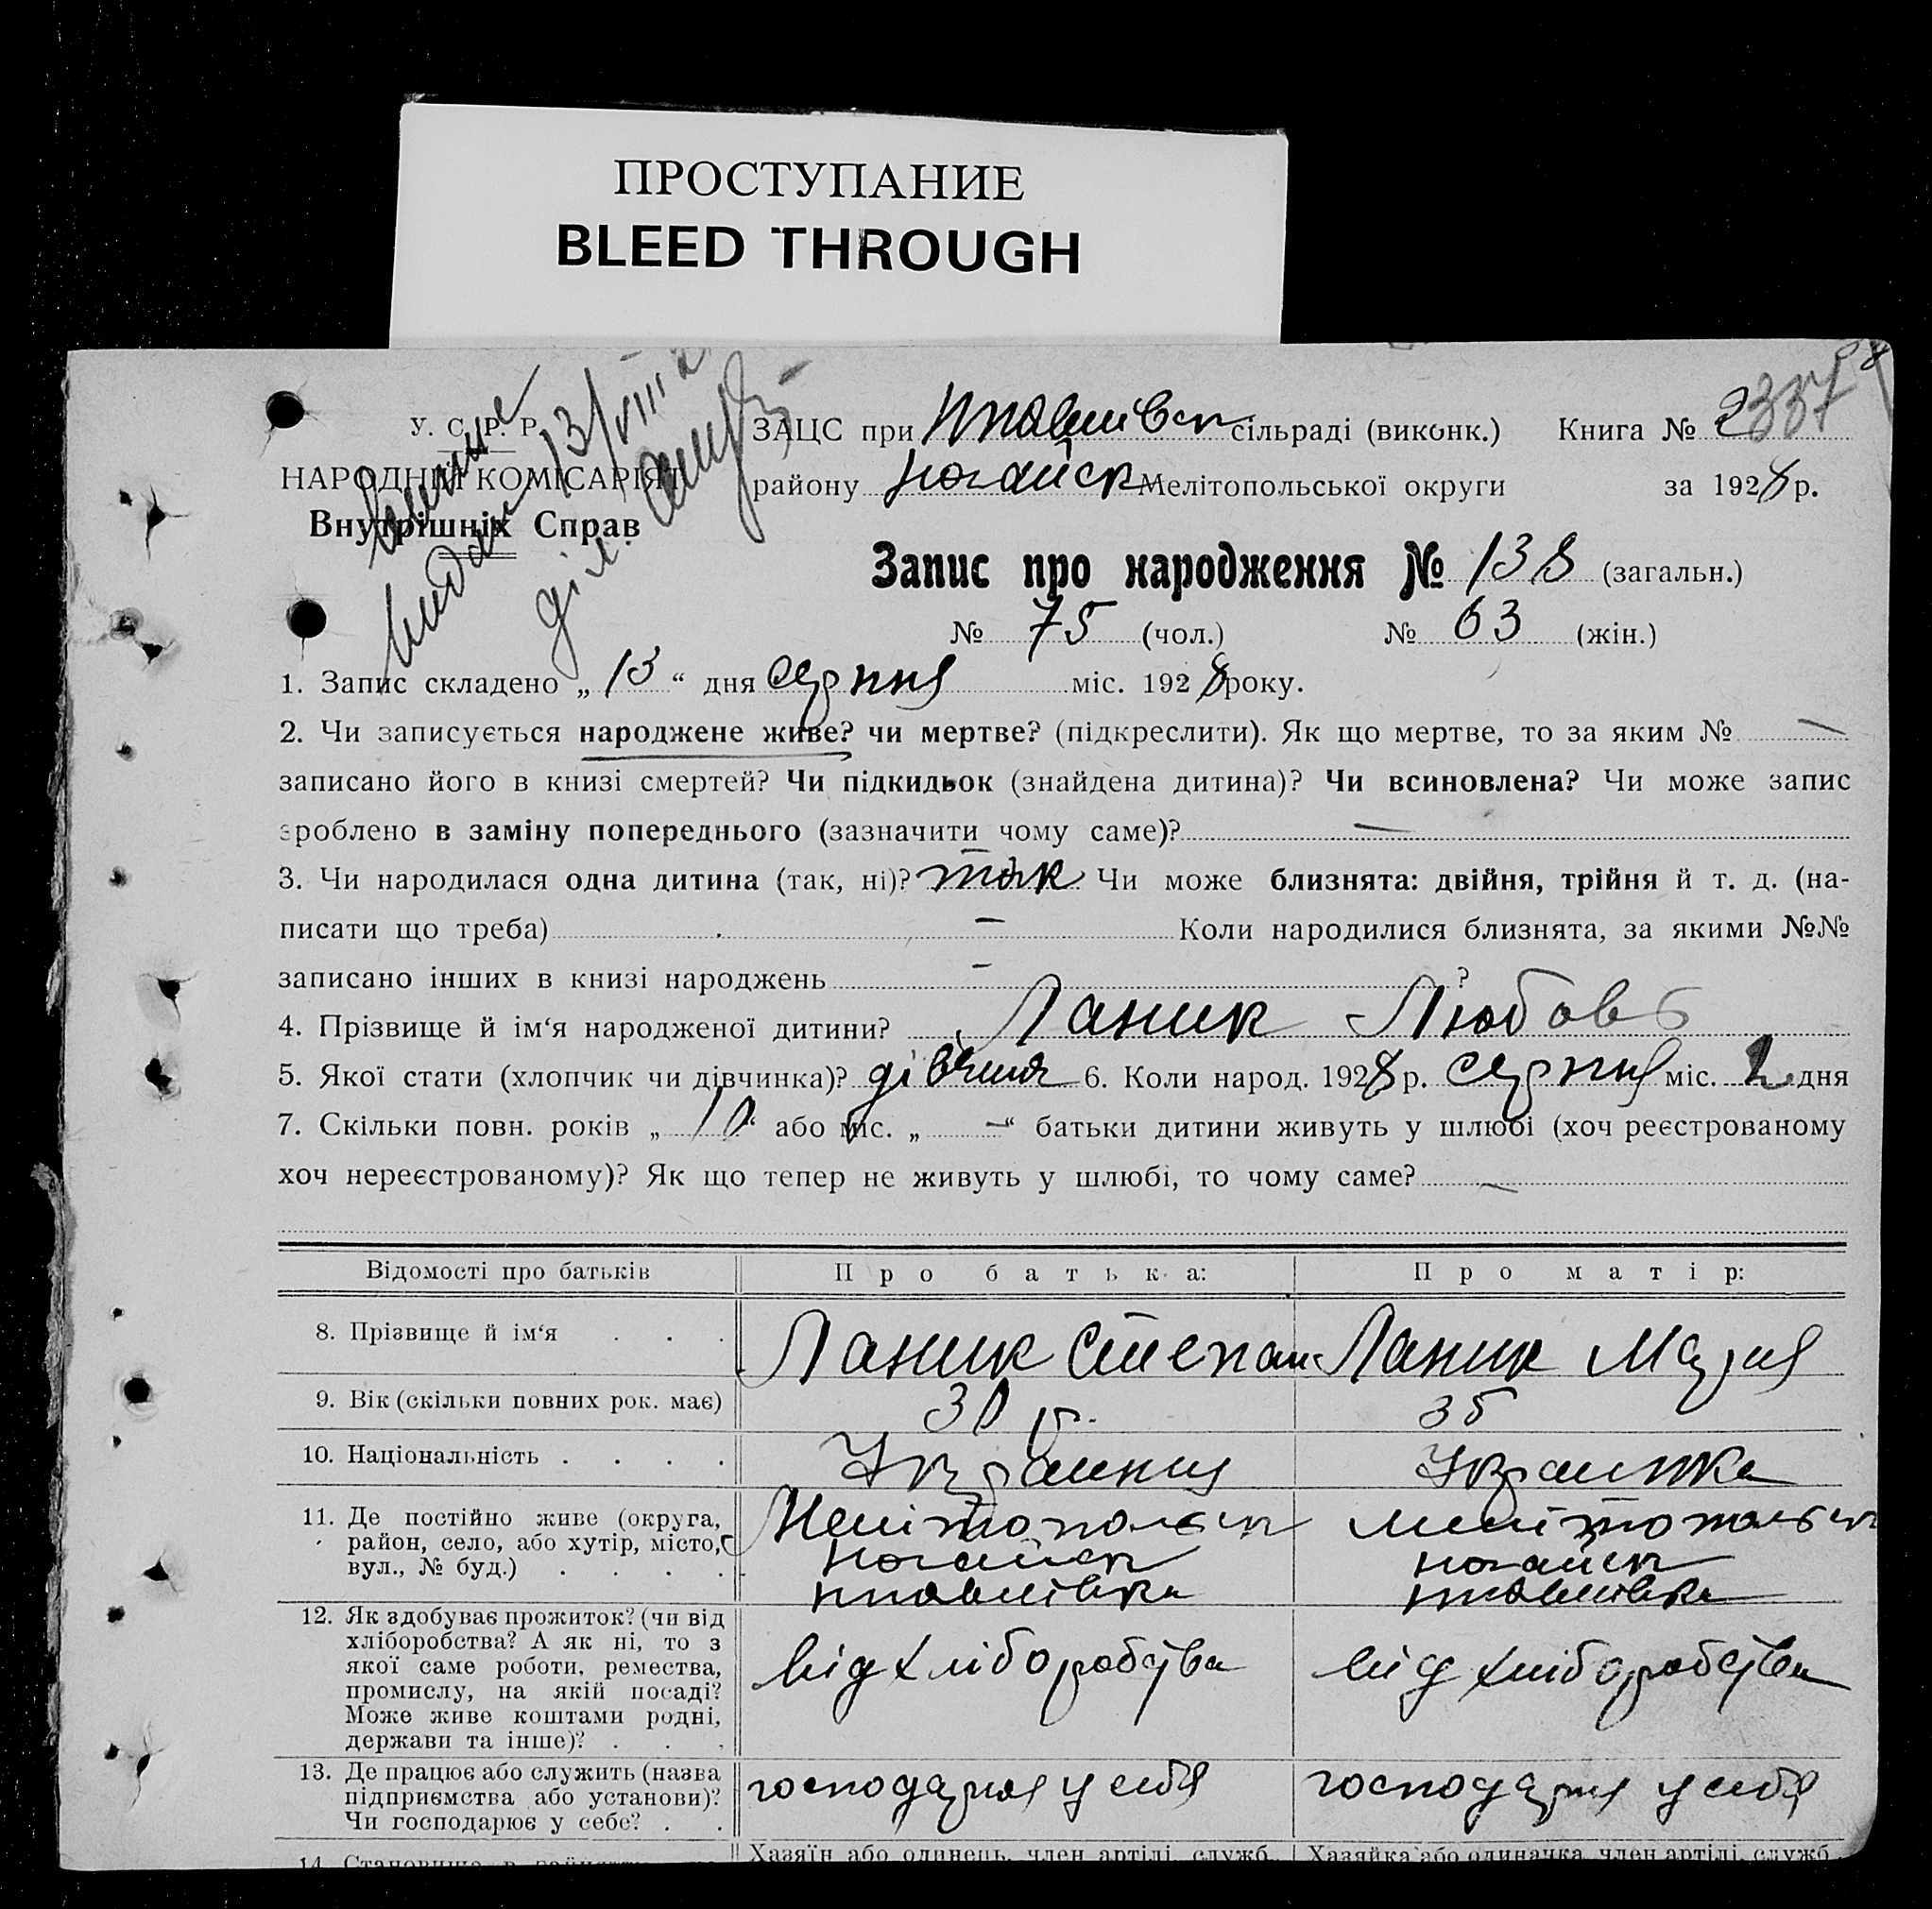 ПРОСТУПАНИЕ
BLEED THROUGH
У. С. Р. Р.
НАРОДНІЙ КОМІСАРІЯТ
Внутрішніх Справ
ЗАЦС при сільраді (виконк.) Книга № 2
району Ногайск Мелітопольської округи за 1928 р.
Запис про народження № 138 (загальн.)
№ 75 (чол.) № 63 (жін.)
1. Запис складено „ 13 “ дня серпня міс. 1928 року.
2. Чи записується народжене живе? чи мертве? (підкреслити). Як що мертве, то за яким № —
записано його в книзі смертей? Чи підкидьок (знайдена дитина)? Чи всиновлена? Чи може запис
зроблено в заміну попереднього (зазначити чому саме)? —
3. Чи народилася одна дитина (так, ні)? так Чи може близнята: двійня, трійня й т. д. (на-
писати що треба) — Коли народилися близнята, за якими №№
записано інших в книзі народжень — ?
4. Прізвище й ім‘я народженої дитини? Ланик Любовь
5. Якої стати (хлопчик чи дівчинка)? 6. Коли народ. 1928 р. серпня міс. 2 дня
7. Скільки повн. років „ 10 “ або міс. „ — “ батьки дитини живуть у шлюбі (хоч реєстрованому
хоч нереєстрованому)? Як що тепер не живуть у шлюбі, то чому саме? —
Відомості про батьків Про батька: Про матір:
8. Прізвище й ім‘я . . . Ланик Степан Ланик Мария
9. Вік (скільки повних рок. має) 30 р. 35
10. Національність . . . . Українец Українка
11. Де постійно живе (округа,
район, село, або хутір, місто,
вул., № буд.) . . . .
Мелітопольск
Ногайск
Мелітопольск
Ногайск
12. Як здобуває прожиток? (чи від
хліборобства? А як ні, то з
якої саме роботи, ремества,
промислу, на якій посаді?
Може живе коштами родні,
держави та інше)? . . .
від хліборобства
від хліборобства
13. Де працює або служить (назва
підприємства або установи)?
Чи господарює у себе? . .
господарня у себя
господарня у себя
Хазяїн або одинець, член артілі, служб.
Хазяйка або одиначка, член артілі, служб.